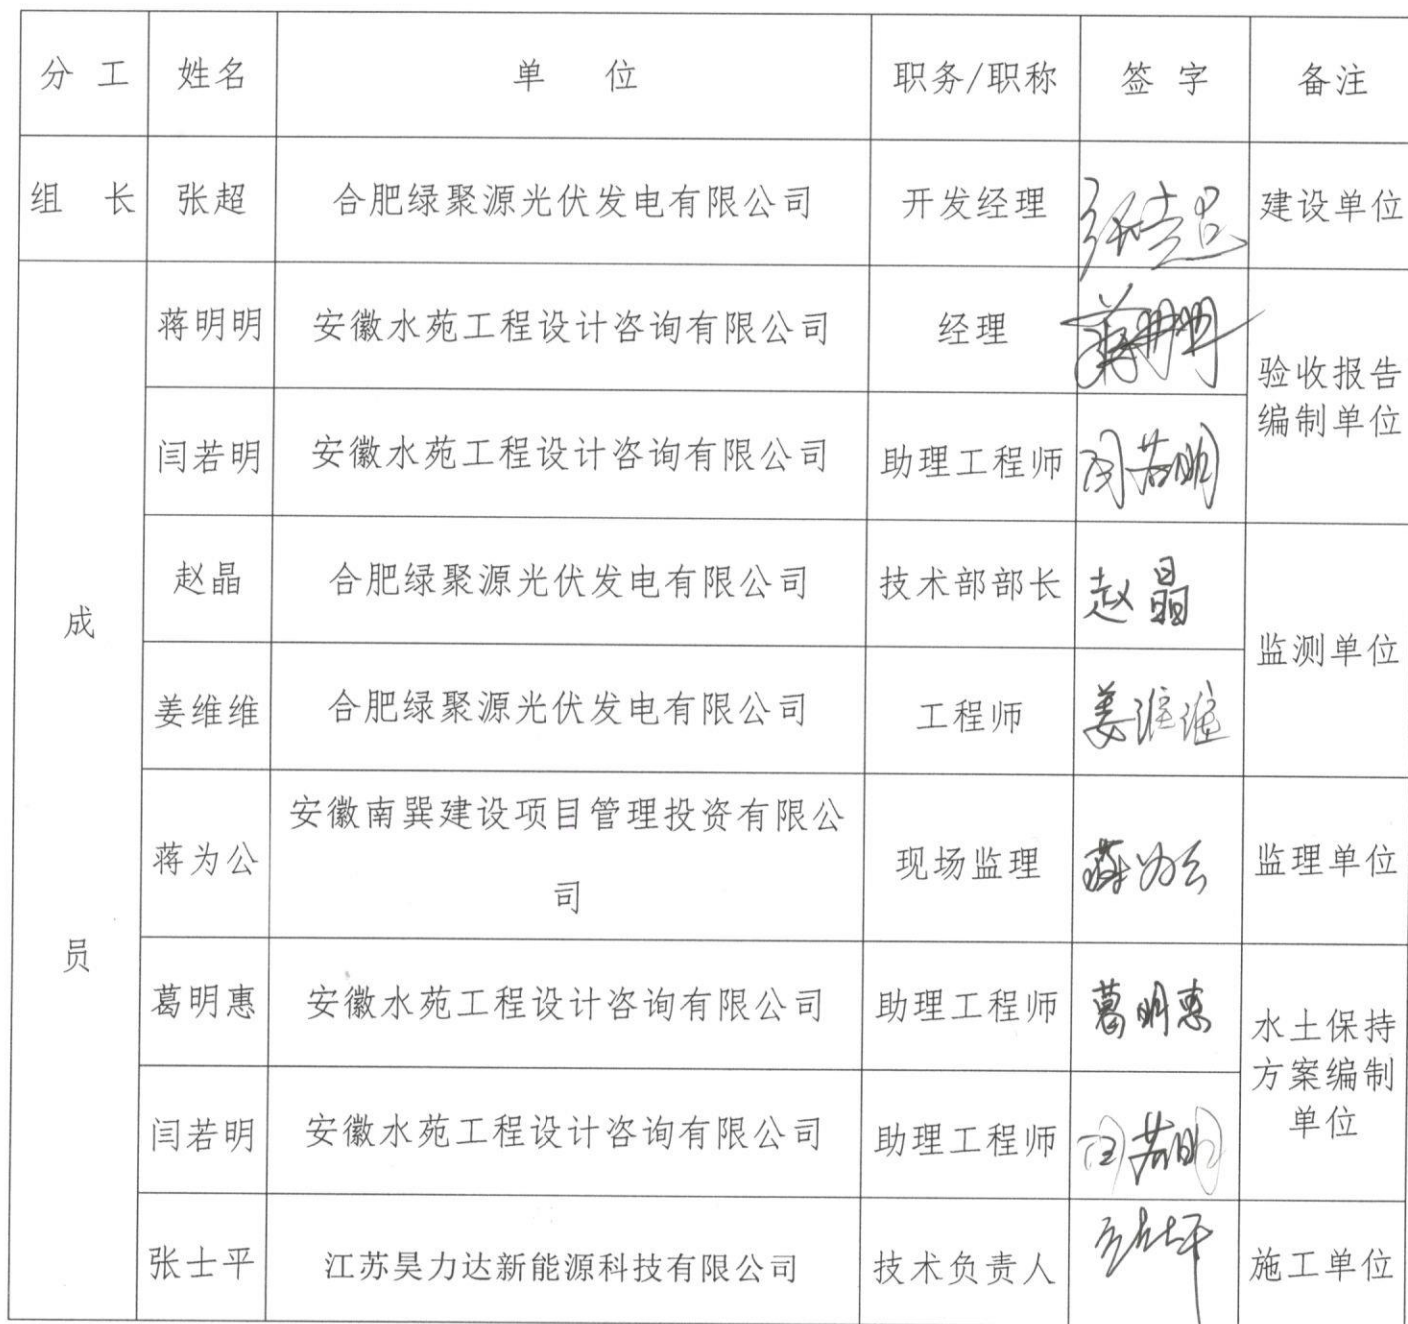 分 工 姓名 单 位 职务/职称 签 字 备注
组 长 张超 合肥绿聚源光伏发电有限公司 开发经理 张超 建设单位
成员
蒋明明 安徽水苑工程设计咨询有限公司 经理 蒋明明
验收报告
编制单位
闫若明 安徽水苑工程设计咨询有限公司 助理工程师 闫若明
赵晶 合肥绿聚源光伏发电有限公司 技术部部长 赵晶
监测单位
姜维维 合肥绿聚源光伏发电有限公司 工程师 姜维维
蒋为公 安徽南巽建设项目管理投资有限公
司
现场监理 蒋为公 监理单位
葛明惠 安徽水苑工程设计咨询有限公司 助理工程师 葛明惠
水土保持
方案编制
单位
闫若明 安徽水苑工程设计咨询有限公司 助理工程师 闫若明
张士平 江苏昊力达新能源科技有限公司 技术负责人 张士平 施工单位